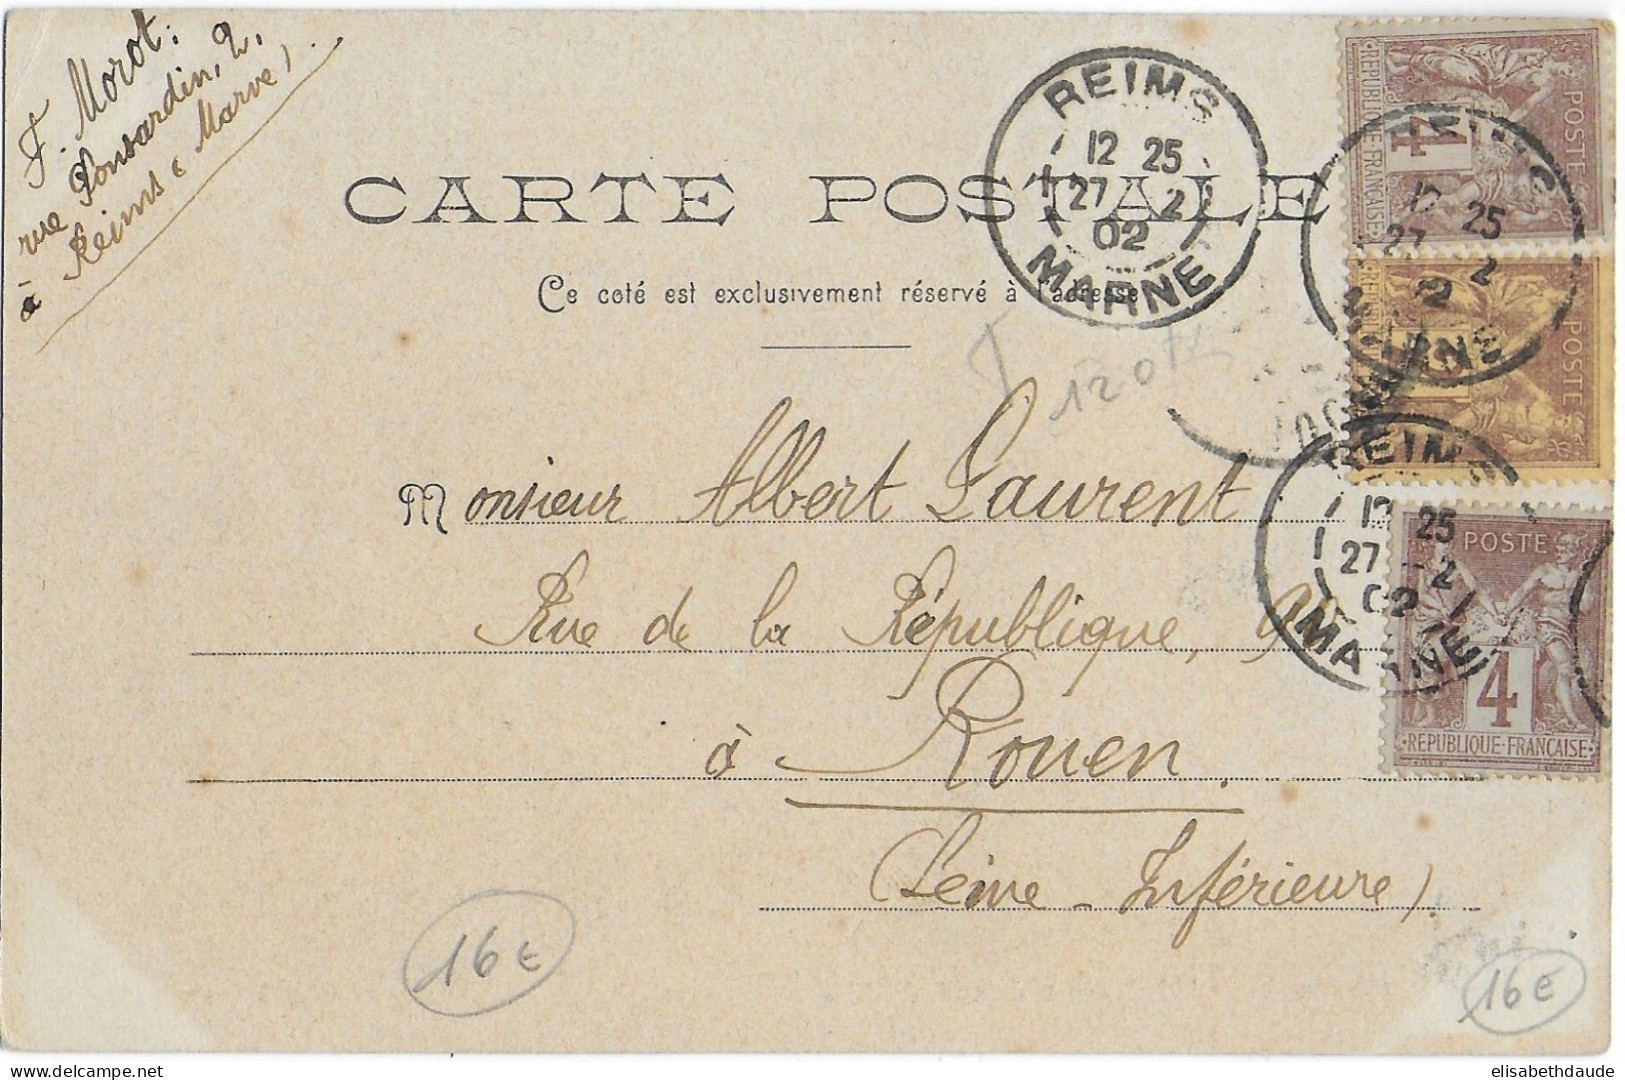 F. Morot:
rue Ponsardin, 2,
à Reims (Marne)
CARTE POSTALE
Ce coté est exclusivement réservé à l'adresse
REIMS
12 25
27 2
02
MARNE
REPUBLIQUE FRANÇAISE
POSTE
4
REIMS
12 25
27 2
02
MARNE
POSTE
REIMS
12 25
27 - 2
02
MARNE
POSTE
4
REPUBLIQUE FRANÇAISE
Monsieur Albert Laurent
Rue de la République,
à Rouen.
(Seine-Inférieure)
16 €
16 €
elisabethdaude